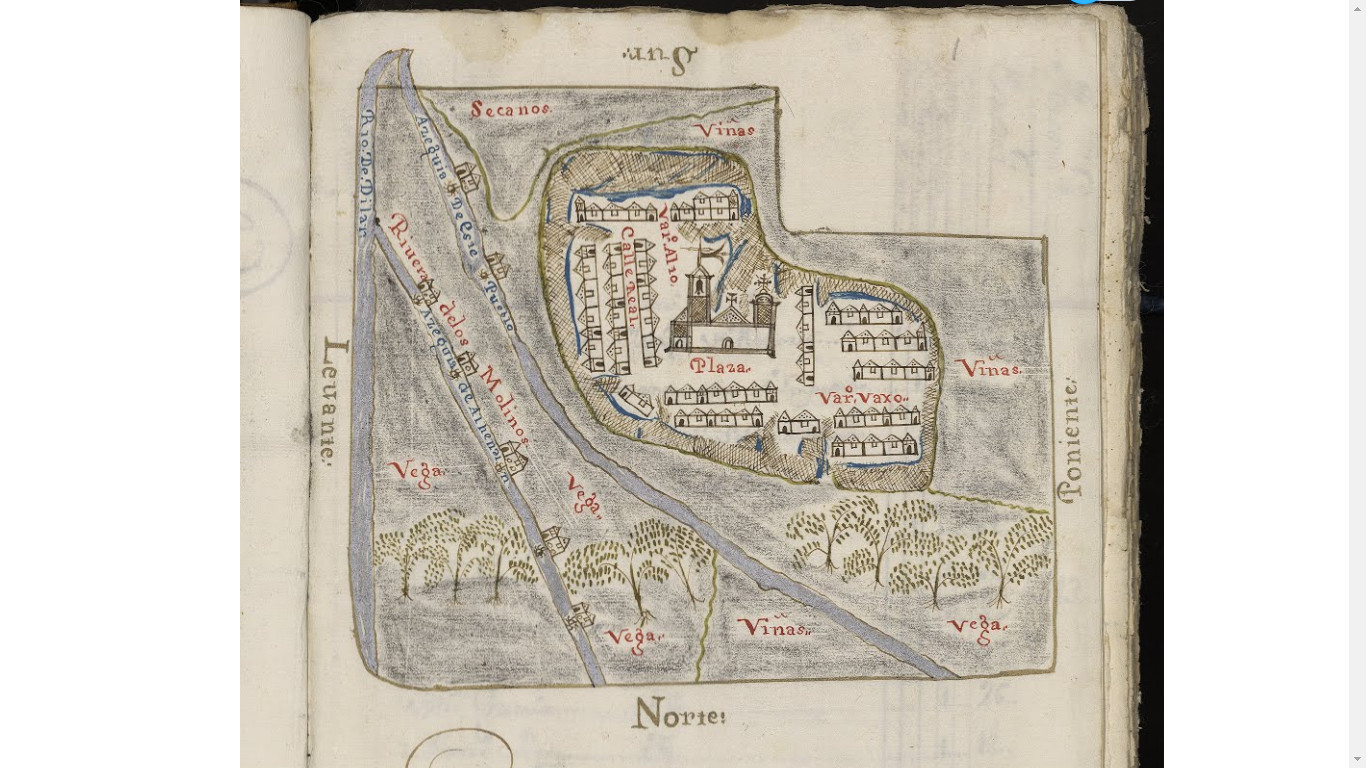 Sur.
Secanos.
Viñas
Rio. De. Dilar.
Azequia De Este Pueblo
Riuera delos Molinos.
Azequia de Alhendin
Varº Alto.
Calle Real.
Plaza.
Varº Vaxo.
Viñas.
Levante.
Poniente.
Vega.
Vega.
Vega.
Viñas.
Vega.
Norte.
1